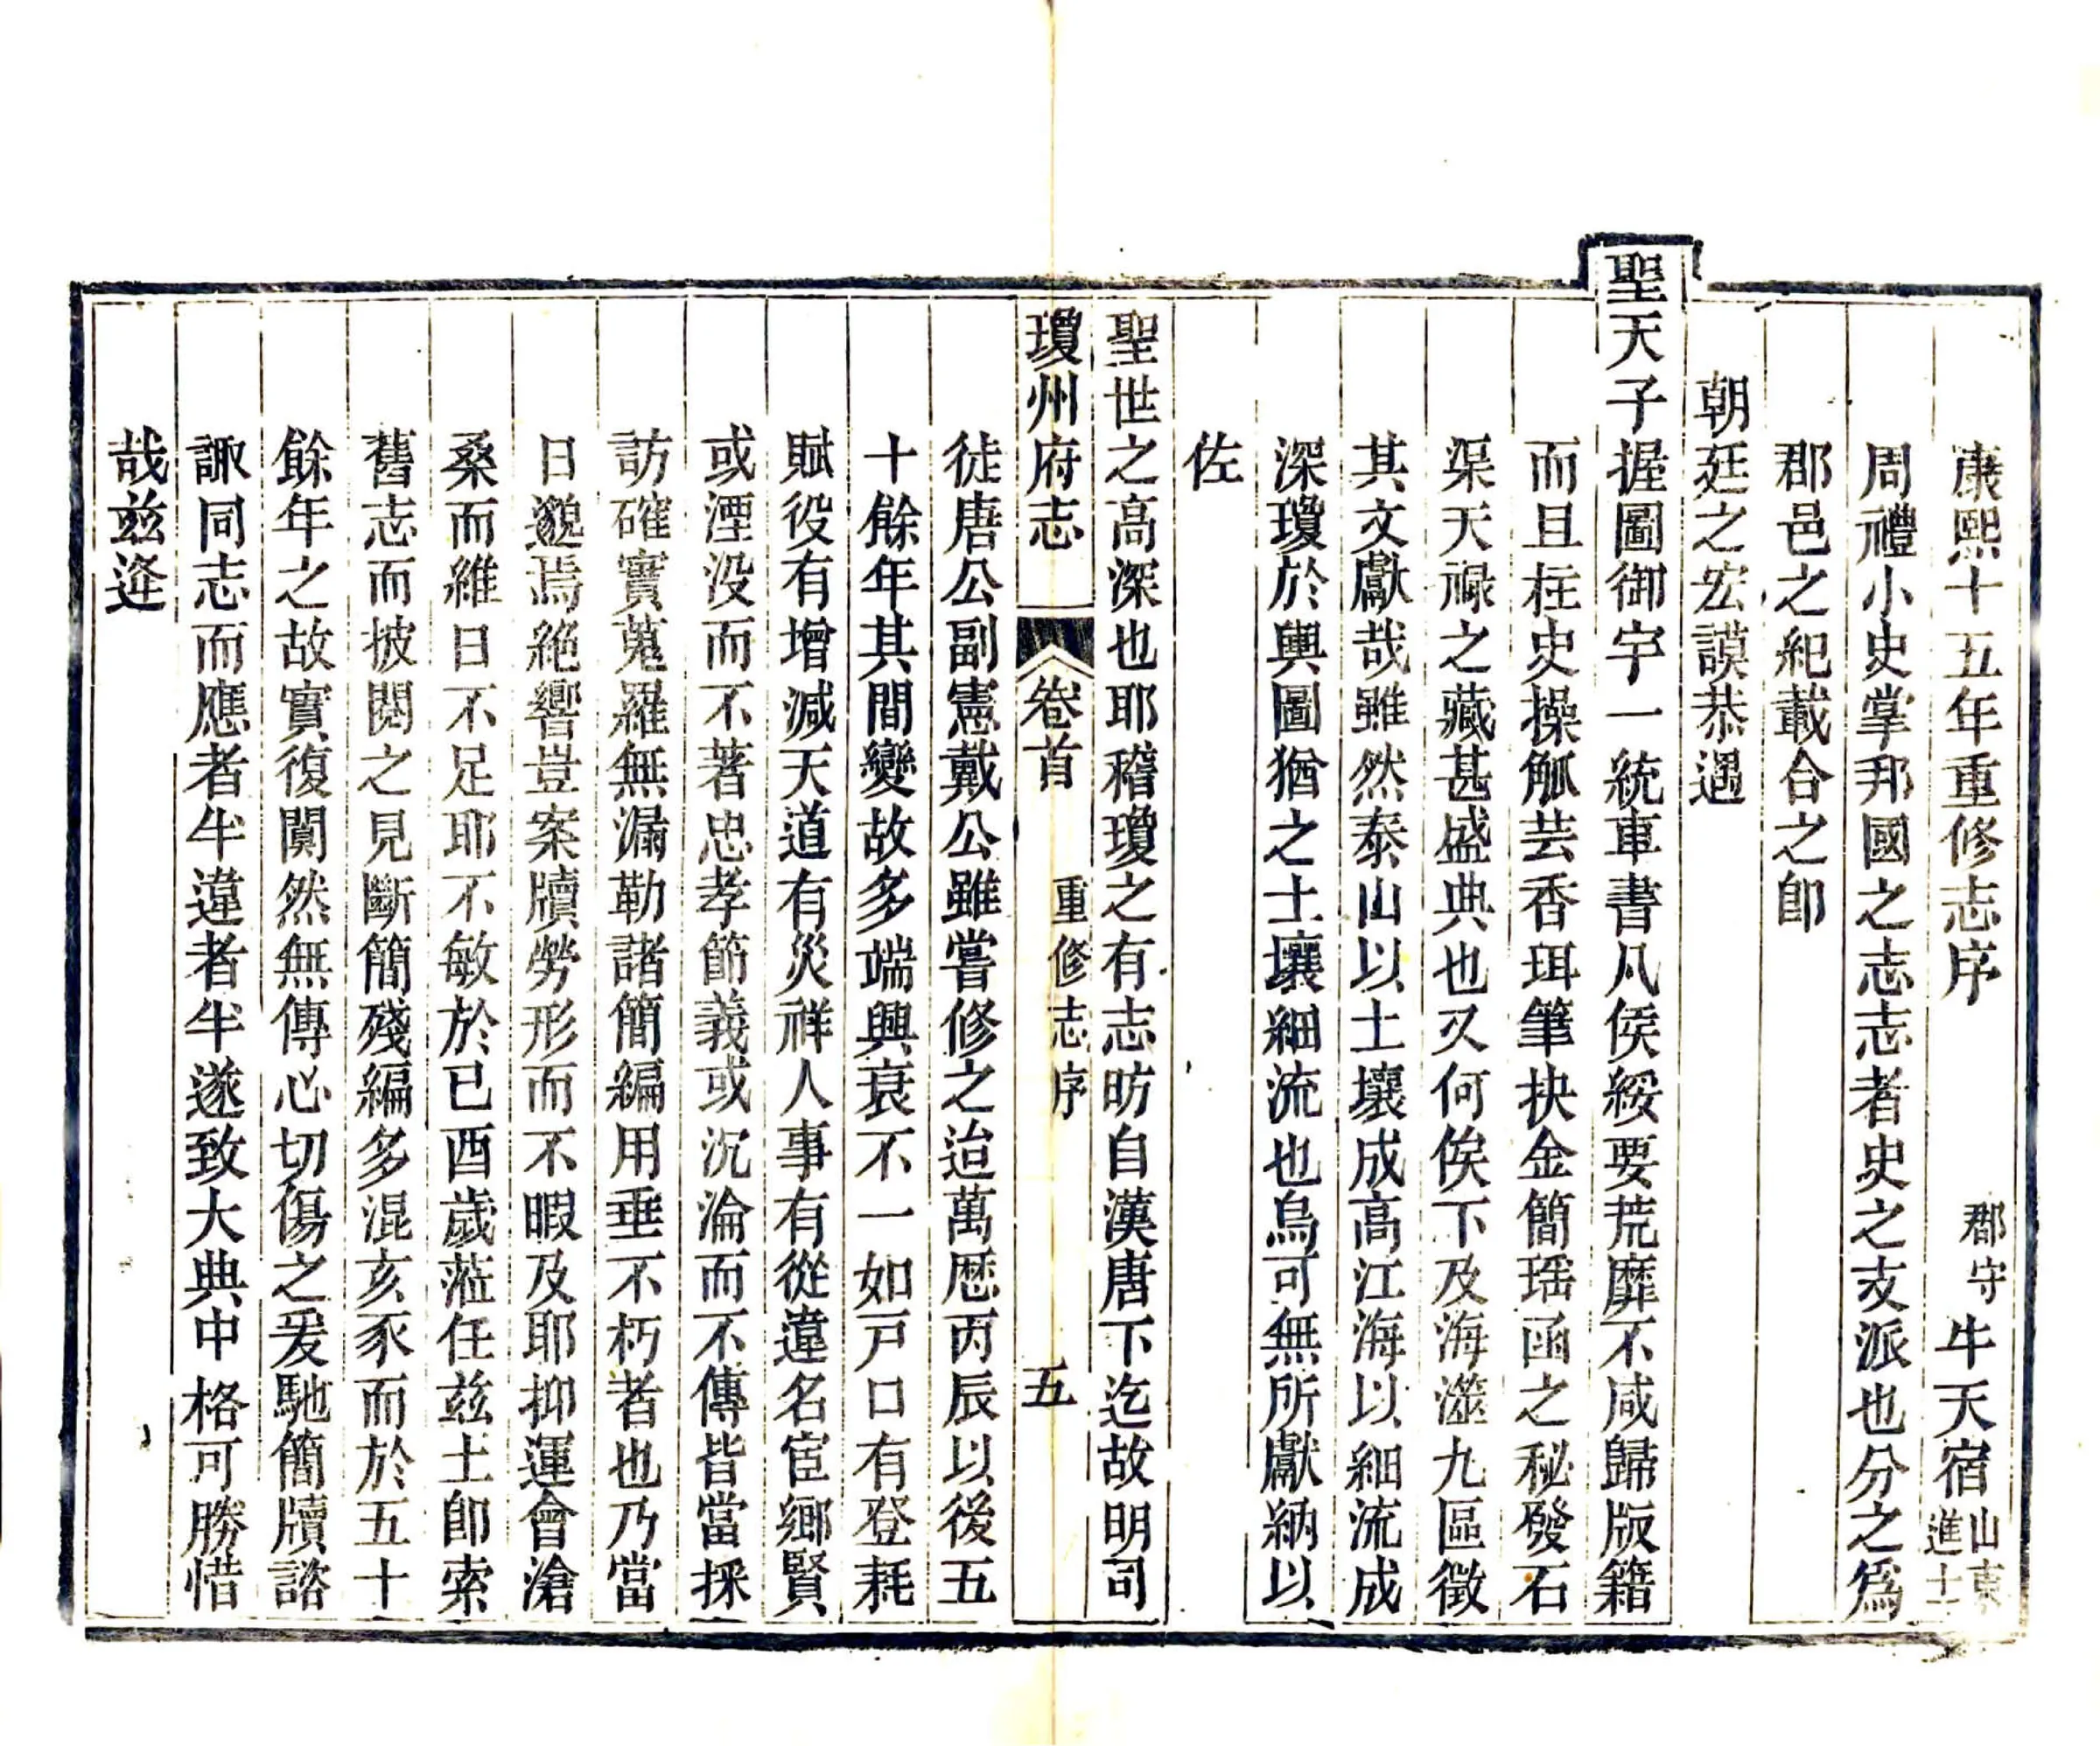 康熙十五年重修志序　郡守牛天宿山東進士
周禮小史掌邦國之志志者史之支派也分之爲
郡邑之紀載合之卽
朝廷之宏謨恭遇
聖天子握圖御宇一統車書凡侯綏要荒靡不咸歸版籍
而且柱史操觚芸香珥筆抉金簡瑶函之秘發石
渠天祿之藏甚盛典也又何俟下及海澨九區徵
其文獻哉雖然泰山以土壤成高江海以細流成
深瓊於輿圖猶之土壤細流也烏可無所獻納以
佐
聖世之高深也耶稽瓊之有志昉自漢唐下迄故明司
瓊州府志　卷首　重修志序　五
徒唐公副憲戴公雖嘗修之迨萬歷丙辰以後五
十餘年其間變故多端興衰不一如戸口有登耗
賦役有增減天道有災祥人事有從違名宦鄉賢
或湮没而不著忠孝節義或沉淪而不傳皆當採
訪確實蒐羅無漏勒諸簡編用垂不朽者也乃當
日邈焉絕響豈案牘勞形而不暇及耶抑運會滄
桑而維日不足耶不敏於已酉歲蒞任兹土卽索
舊志而披閱之見斷簡殘編多混亥豕而於五十
餘年之故實復闃然無傳心切傷之爰馳簡牘諮
諏同志而應者半違者半遂致大典中格可勝惜
哉兹逄